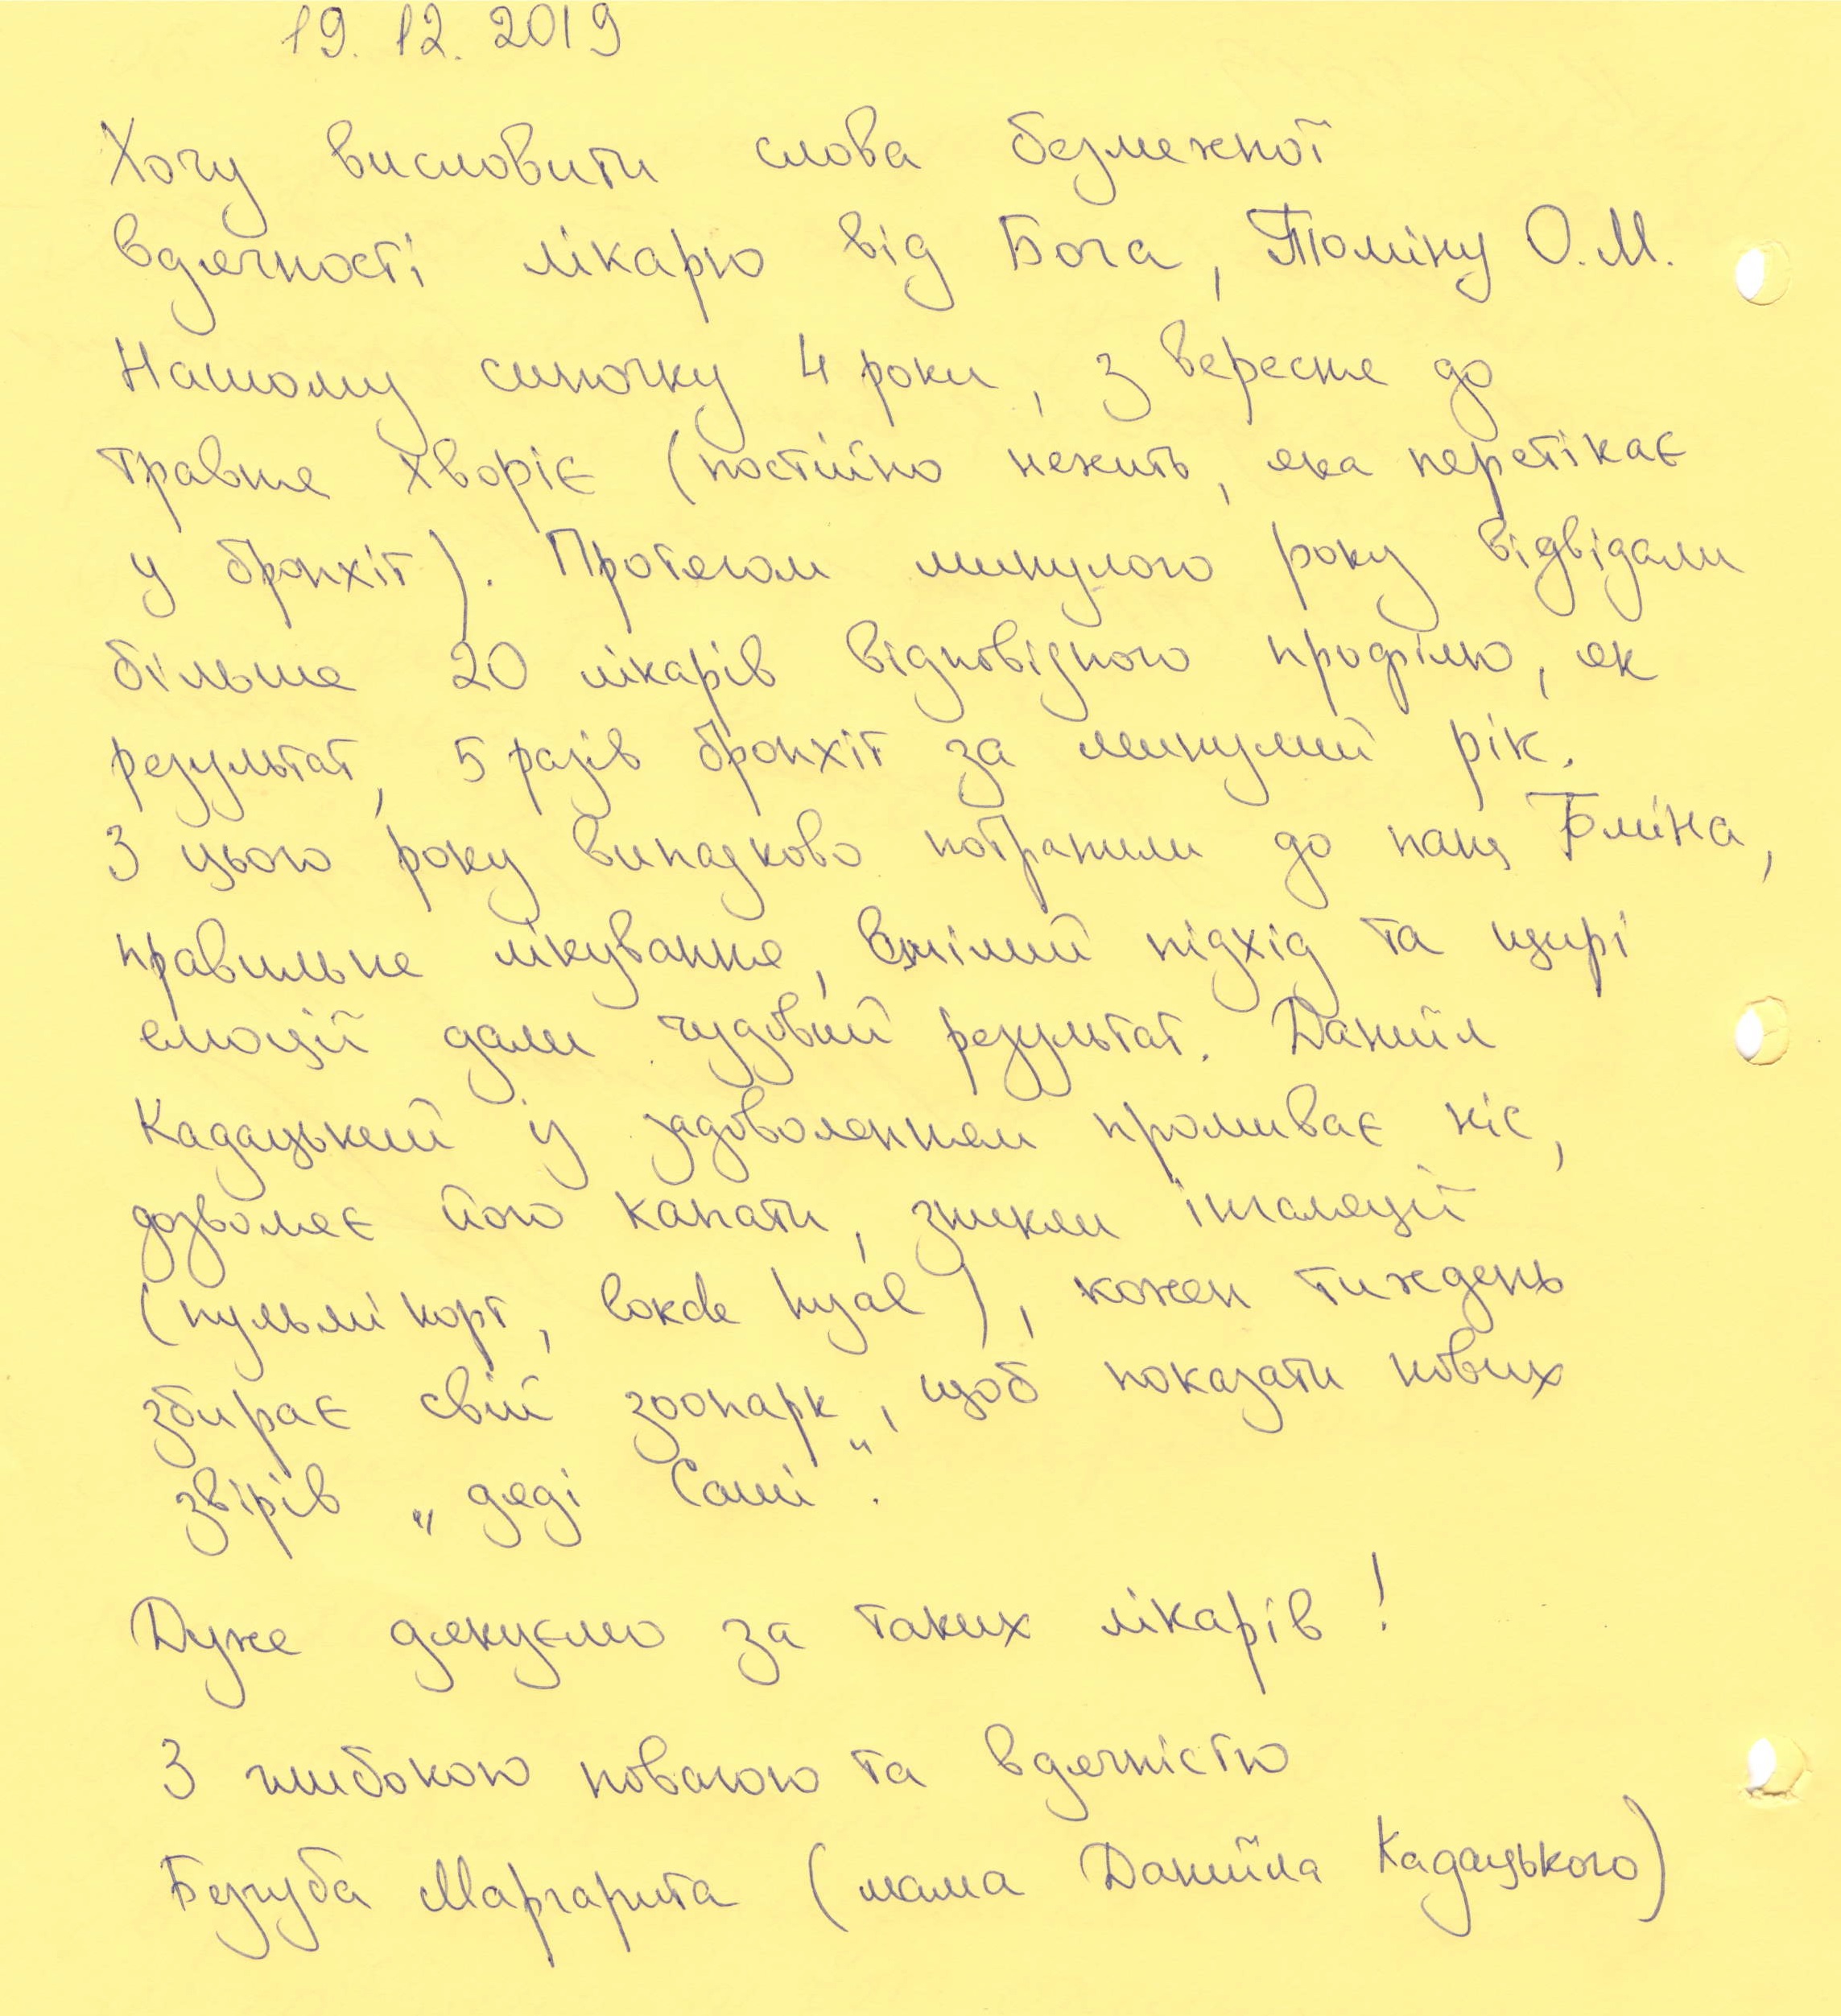 19. 12. 2019
Хочу висловити слова безмежної
вдячності лікарю від Бога, Тюміну О.М.
Нашому синочку 4 роки, з вересня до
травня хворіє (постійно нежить, яка перетікає
у бронхіт). Протягом минулого року відвідали
більше 20 лікарів відповідного профілю, як
результат, 5 разів бронхіт за минулий рік.
З цього року випадково потрапили до пана
правильне лікування, вмілий підхід та щирі
емоції дали чудовий результат. Даниїл
Кадацький із задоволенням промиває ніс,
дозволяє його капати, зникли інгаляції
(пульмікорт, hyal), кожен тиждень
збирає свій зоопарк, щоб показати нових
звірів „дяді Саші".
Дуже дякуємо за таких лікарів!
З глибокою повагою та вдячністю
Безуба Маргарита (мама Даниїла Кадацького)